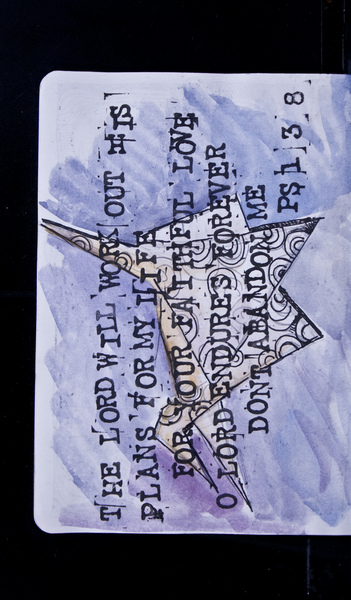 THE LORD WILL WORK OUT HIS
PLANS FOR MY LIFE
FOR YOUR FAITHFUL LOVE
O LORD ENDURES FOREVER
DONT ABANDON ME
PS 138